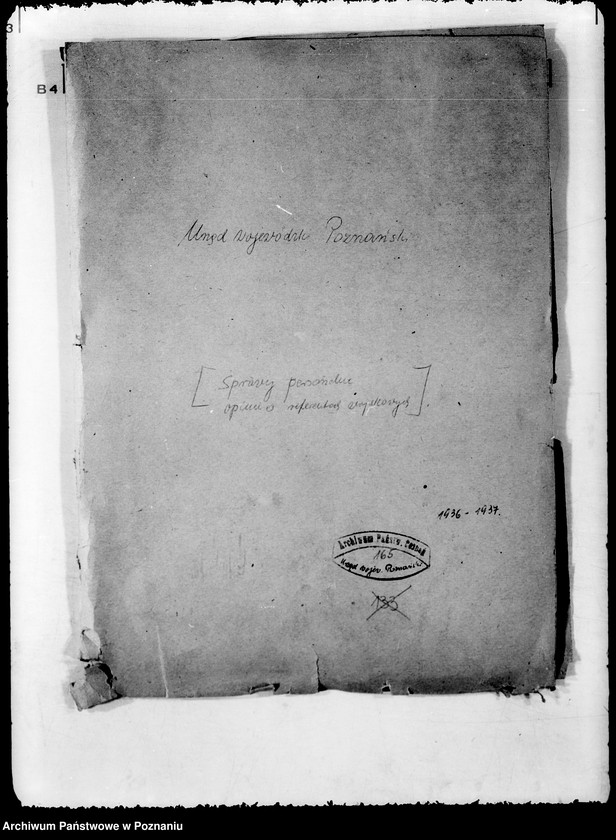 3
B4
Urząd Wojewódzki Poznański
[Sprawy personalne
opinie o referentach wojskowych].
1936 - 1937.
Archiwum Państw. Poznań
165
Urząd Wojew. Poznański
133
Archiwum Państwowe w Poznaniu